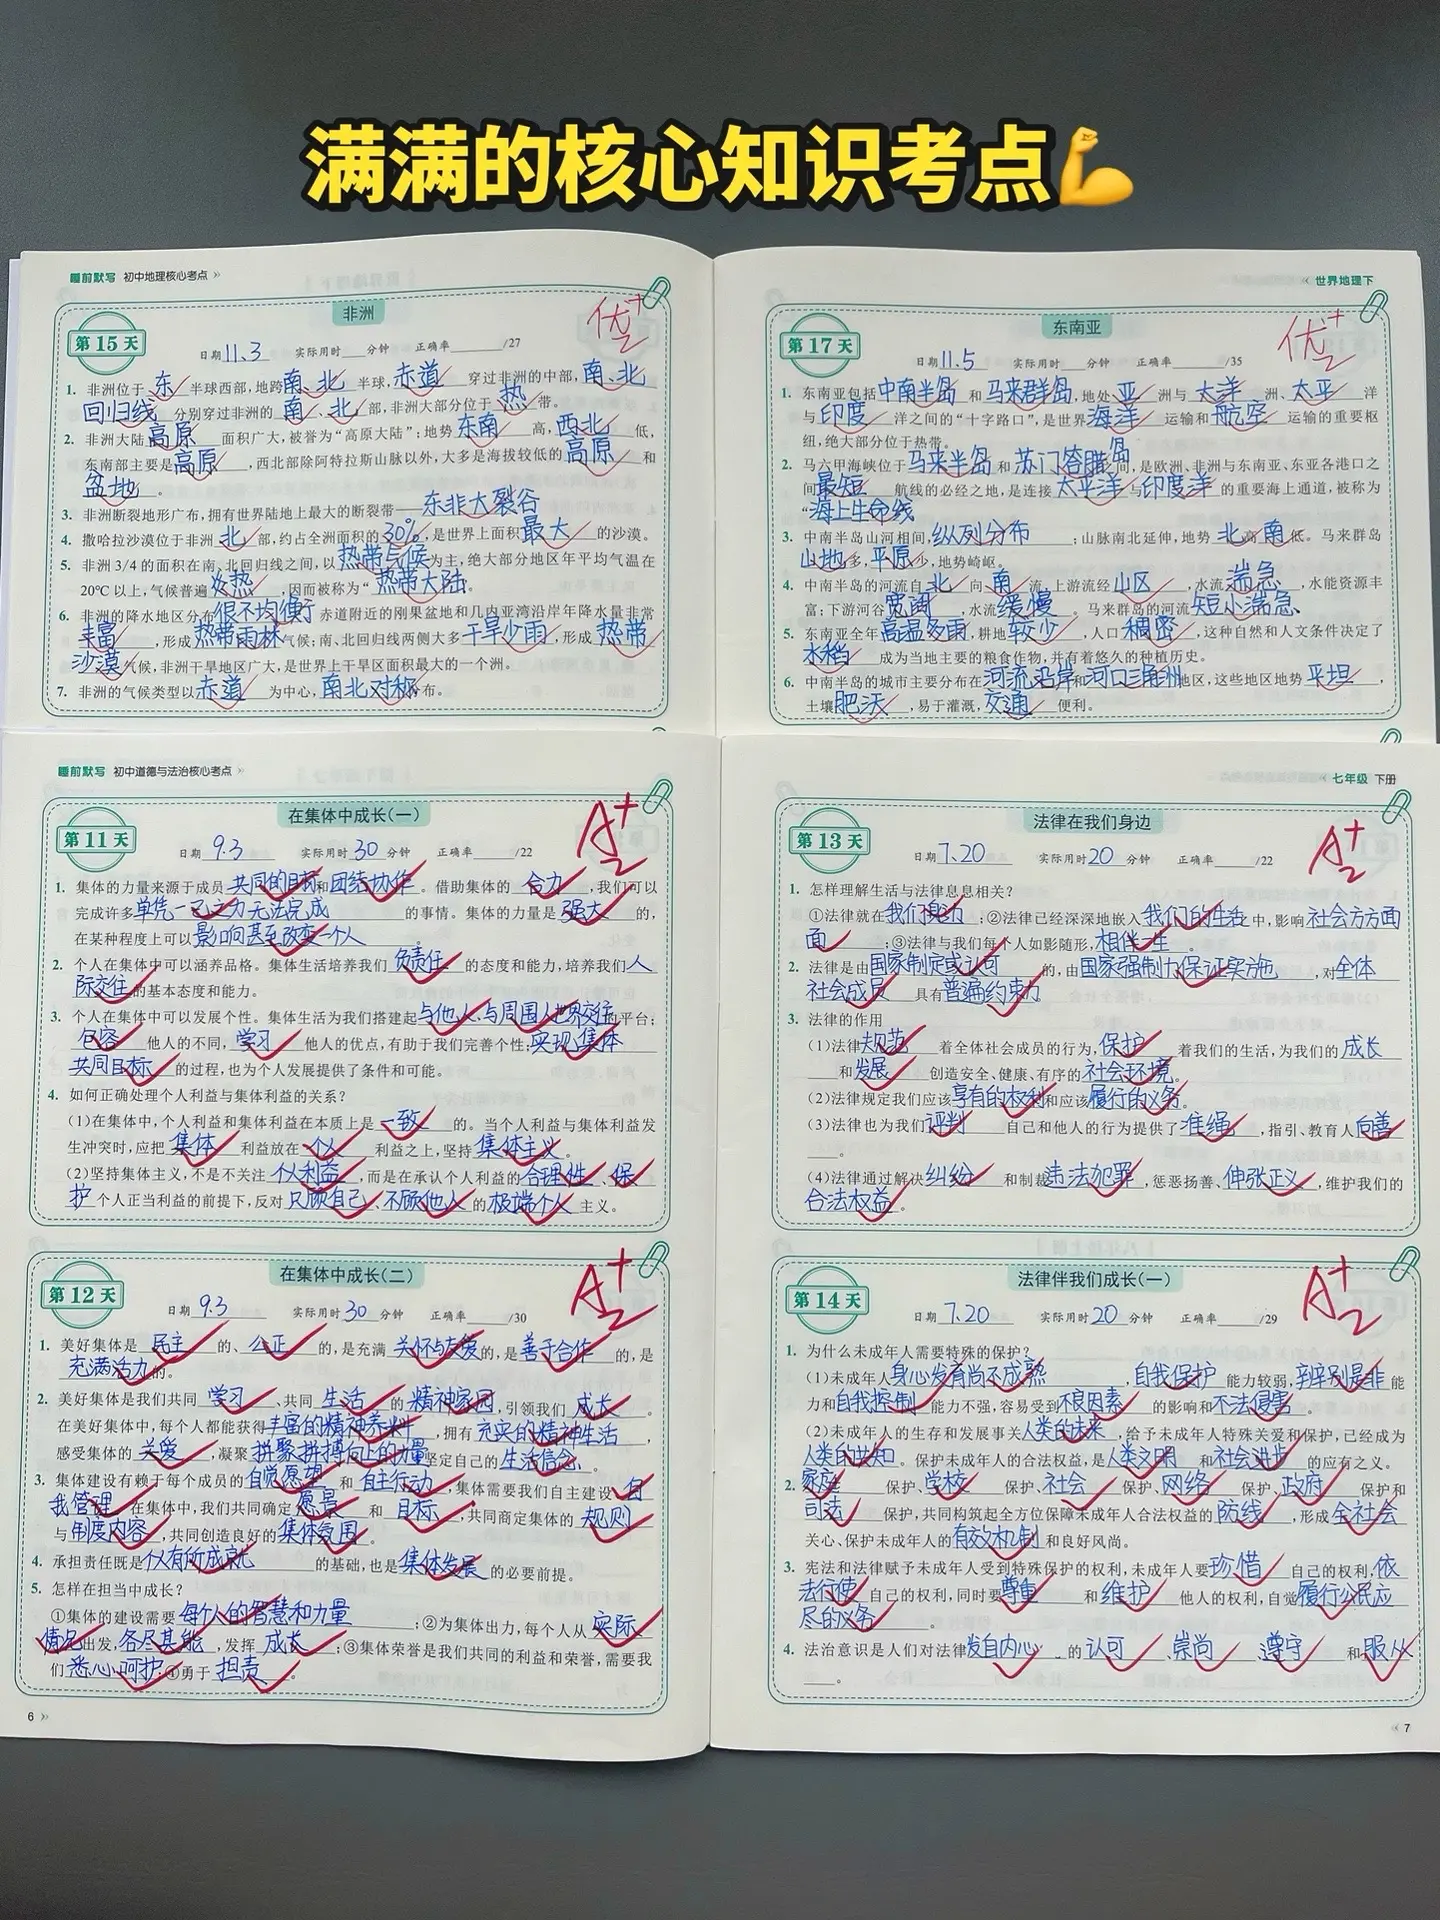 满满的核心知识考点💪
睡前默写 初中地理核心考点 »
非洲
优+
2
第15天
日期11.3 实际用时 分钟 正确率 /27
1. 非洲位于东半球西部,地跨南、北半球,赤道穿过非洲的中部,南、北
回归线分别穿过非洲的南、北部,非洲大部分位于热带。
2. 非洲大陆高原面积广大,被誉为“高原大陆”;地势东南高,西北低,
东南部主要是高原,西北部除阿特拉斯山脉以外,大多是海拔较低的高原和
盆地。
3. 非洲断裂地形广布,拥有世界陆地上最大的断裂带——东非大裂谷
4. 撒哈拉沙漠位于非洲北部,约占全洲面积的30%,是世界上面积最大的沙漠。
5. 非洲3/4的面积在南、北回归线之间,以热带气候为主,绝大部分地区年平均气温在
20℃以上,气候普遍炎热,因而被称为“热带大陆。
6. 非洲的降水地区分布很不均衡 赤道附近的刚果盆地和几内亚湾沿岸年降水量非常
丰富,形成热带雨林气候;南、北回归线两侧大多干旱少雨,形成热带
沙漠气候,非洲干旱地区广大,是世界上干旱区面积最大的一个洲。
7. 非洲的气候类型以赤道为中心,南北对称分布。
« 世界地理下
东南亚
优+
2
第17天
日期11.5 实际用时 分钟 正确率 /35
1. 东南亚包括中南半岛和马来群岛,地处亚洲与大洋洲、太平洋
与印度洋之间的“十字路口”,是世界海洋运输和航空运输的重要枢
纽,绝大部分位于热带。
2. 马六甲海峡位于马来半岛和苏门答腊岛之间,是欧洲、非洲与东南亚、东亚各港口之
间最短航线的必经之地,是连接太平洋与印度洋的重要海上通道,被称为
“海上生命线
3. 中南半岛山河相间,纵列分布;山脉南北延伸,地势北高南低。马来群岛
山地多,平原少,地势崎岖。
4. 中南半岛的河流自北向南流,上游流经山区,水流湍急,水能资源丰
富;下游河谷宽阔,水流缓慢。马来群岛的河流短小湍急
5. 东南亚全年高温多雨,耕地较少,人口稠密,这种自然和人文条件决定了
水稻成为当地主要的粮食作物,并有着悠久的种植历史。
6. 中南半岛的城市主要分布在河流沿岸和河口三角洲地区,这些地区地势平坦,
土壤肥沃,易于灌溉,交通便利。
睡前默写 初中道德与法治核心考点 »
在集体中成长(一)
A+
2
第11天
日期9.3 实际用时30分钟 正确率 /22
1. 集体的力量来源于成员共同的目标和团结协作。借助集体的合力,我们可以
完成许多单凭一己之力无法完成的事情。集体的力量是强大的,
在某种程度上可以影响甚至改变一个人。
2. 个人在集体中可以涵养品格。集体生活培养我们负责任的态度和能力,培养我们人
际交往的基本态度和能力。
3. 个人在集体中可以发展个性。集体生活为我们搭建起与他人、与周围人世界交往的平台;
包容他人的不同,学习他人的优点,有助于我们完善个性;实现集体
共同目标的过程,也为个人发展提供了条件和可能。
4. 如何正确处理个人利益与集体利益的关系?
(1)在集体中,个人利益和集体利益在本质上是一致的。当个人利益与集体利益发
生冲突时,应把集体利益放在个人利益之上,坚持集体主义。
(2)坚持集体主义,不是不关注个人利益,而是在承认个人利益的合理性、保
护个人正当利益的前提下,反对只顾自己、不顾他人的极端个人主义。
在集体中成长(二)
A+
2
第12天
日期9.3 实际用时30分钟 正确率 /30
1. 美好集体是民主的、公正的,是充满关怀与友爱的,是善于合作的,是
充满活力的。
2. 美好集体是我们共同学习、共同生活的精神家园,引领我们成长。
在美好集体中,每个人都能获得丰富的精神养料,拥有充实的精神生活,
感受集体的关爱,凝聚拼聚拼搏向上的力量坚定自己的生活信念。
3. 集体建设有赖于每个成员的自觉愿望和自主行动,集体需要我们自主建设、自
我管理。在集体中,我们共同确定愿景和目标,共同商定集体的规则
与制度内容,共同创造良好的集体氛围。
4. 承担责任既是个人有所成就的基础,也是集体发展的必要前提。
5. 怎样在担当中成长?
①集体的建设需要每个人的智慧和力量;②为集体出力,每个人从实际
情况出发,各尽其能,发挥成长;③集体荣誉是我们共同的利益和荣誉,需要我
们悉心呵护;④勇于担责。
6 »
« 七年级 下册
法律在我们身边
A+
2
第13天
日期7.20 实际用时20分钟 正确率 /22
1. 怎样理解生活与法律息息相关?
①法律就在我们身边;②法律已经深深地嵌入我们的生活中,影响社会方方面
面;③法律与我们每个人如影随形,相伴一生。
2. 法律是由国家制定或认可的,由国家强制力保证实施,对全体
社会成员具有普遍约束力
3. 法律的作用
(1)法律规范着全体社会成员的行为,保护着我们的生活,为我们的成长
和发展创造安全、健康、有序的社会环境。
(2)法律规定我们应该享有的权利和应该履行的义务。
(3)法律也为我们评判自己和他人的行为提供了准绳,指引、教育人向善
。
(4)法律通过解决纠纷和制裁违法犯罪,惩恶扬善、伸张正义,维护我们的
合法权益。
法律伴我们成长(一)
A+
2
第14天
日期7.20 实际用时20分钟 正确率 /29
1. 为什么未成年人需要特殊的保护?
(1)未成年人身心发育尚不成熟,自我保护能力较弱,辨别是非能
力和自我控制能力不强,容易受到不良因素的影响和不法侵害。
(2)未成年人的生存和发展事关人类的未来,给予未成年人特殊关爱和保护,已经成为
人类的共知。保护未成年人的合法权益,是人类文明和社会进步的应有之义。
2. 家庭保护、学校保护、社会保护、网络保护、政府保护和
司法保护,共同构筑起全方位保障未成年人合法权益的防线,形成全社会
关心、保护未成年人的有效机制和良好风尚。
3. 宪法和法律赋予未成年人受到特殊保护的权利,未成年人要珍惜自己的权利,依
法行使自己的权利,同时要尊重和维护他人的权利,自觉履行公民应
尽的义务。
4. 法治意识是人们对法律发自内心的认可、崇尚、遵守和服从
。
« 7